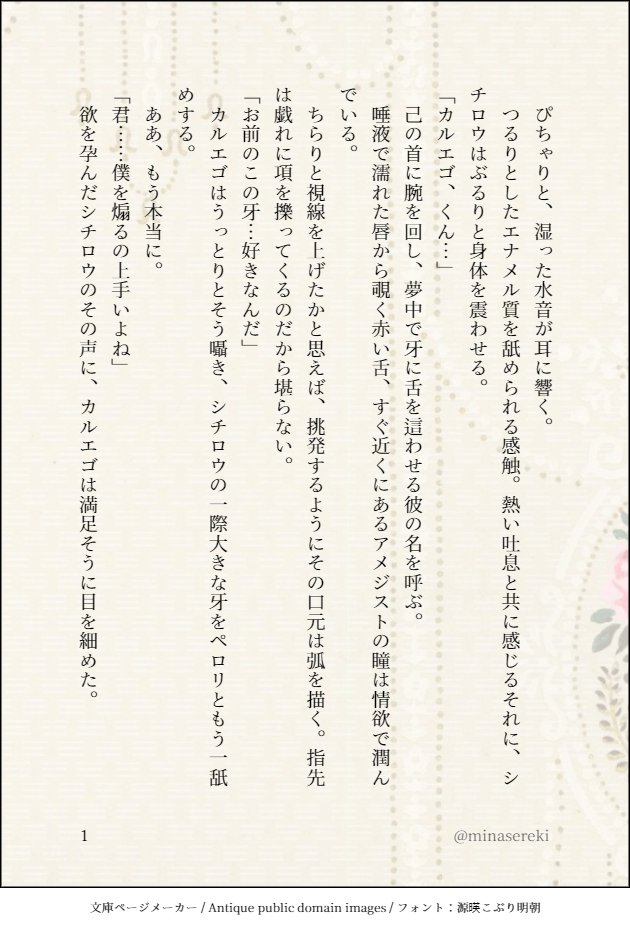 ぴちゃりと、湿った水音が耳に響く。
つるりとしたエナメル質を舐められる感触。熱い吐息と共に感じるそれに、シ
チロウはぶるりと身体を震わせる。
「カルエゴ、くん…」
己の首に腕を回し、夢中で牙に舌を這わせる彼の名を呼ぶ。
唾液で濡れた唇から覗く赤い舌、すぐ近くにあるアメジストの瞳は情欲で潤ん
でいる。
ちらりと視線を上げたかと思えば、挑発するようにその口元は弧を描く。指先
は戯れに項を擽ってくるのだから堪らない。
「お前のこの牙…好きなんだ」
カルエゴはうっとりとそう囁き、シチロウの一際大きな牙をペロリともう一舐
めする。
ああ、もう本当に。
「君……僕を煽るの上手いよね」
欲を孕んだシチロウのその声に、カルエゴは満足そうに目を細めた。
1
@minasereki
文庫ページメーカー / Antique public domain images / フォント：源暎こぶり明朝